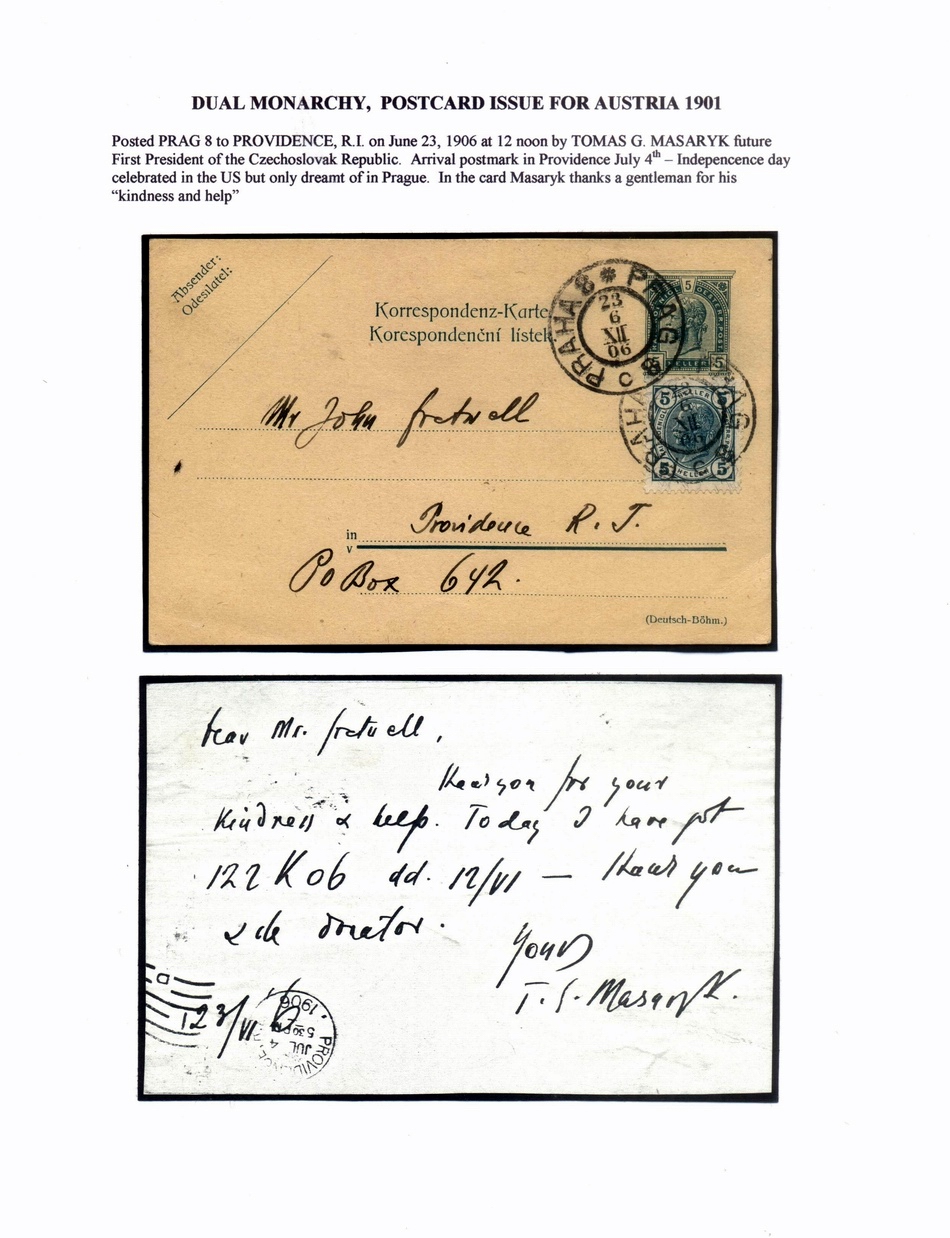 DUAL MONARCHY, POSTCARD ISSUE FOR AUSTRIA 1901
Posted PRAG 8 to PROVIDENCE, R.I. on June 23, 1906 at 12 noon by TOMAS G. MASARYK future
First President of the Czechoslovak Republic. Arrival postmark in Providence July 4th – Indepencence day
celebrated in the US but only dreamt of in Prague. In the card Masaryk thanks a gentleman for his
“kindness and help”
Absender:
Odesílatel:
Korrespondenz-Karte
Korespondenční lístek
PRAHA 8 * PRAG 8 c
23
6
XII
06
5
5 HELLER 5
Mr John Fretwell
5 5
5 HELLER 5
in
v
Providence R. I.
Po Box 642.
(Deutsch-Böhm.)
Dear Mr. Fretwell,
Thank you for your
kindness & help. Today I have got
122 K 06 dd. 12/VI — Thank you
& the donator.
Yours
T. G. Masaryk.
23/VI 6
PROVIDENCE, R
JUL 4
5 30 PM
1906